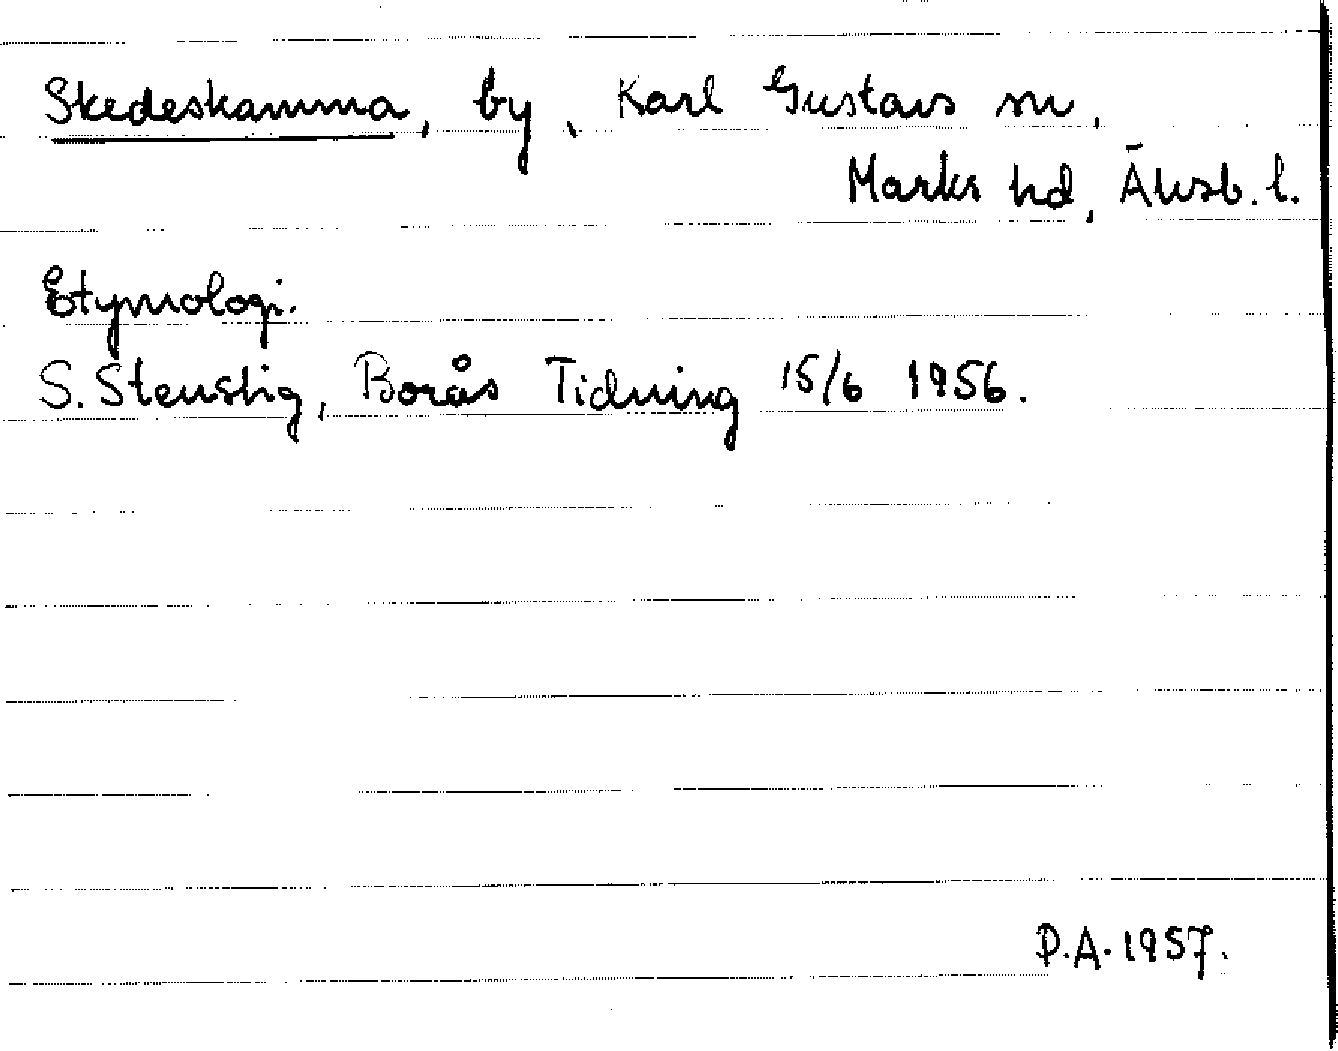 Skedeskamma, by, Karl Gustavs sn,
Marks hd, Älvsb. l.
Etymologi.
S. Stenstig, Borås Tidning 15/6 1956.
P.A. 1957.